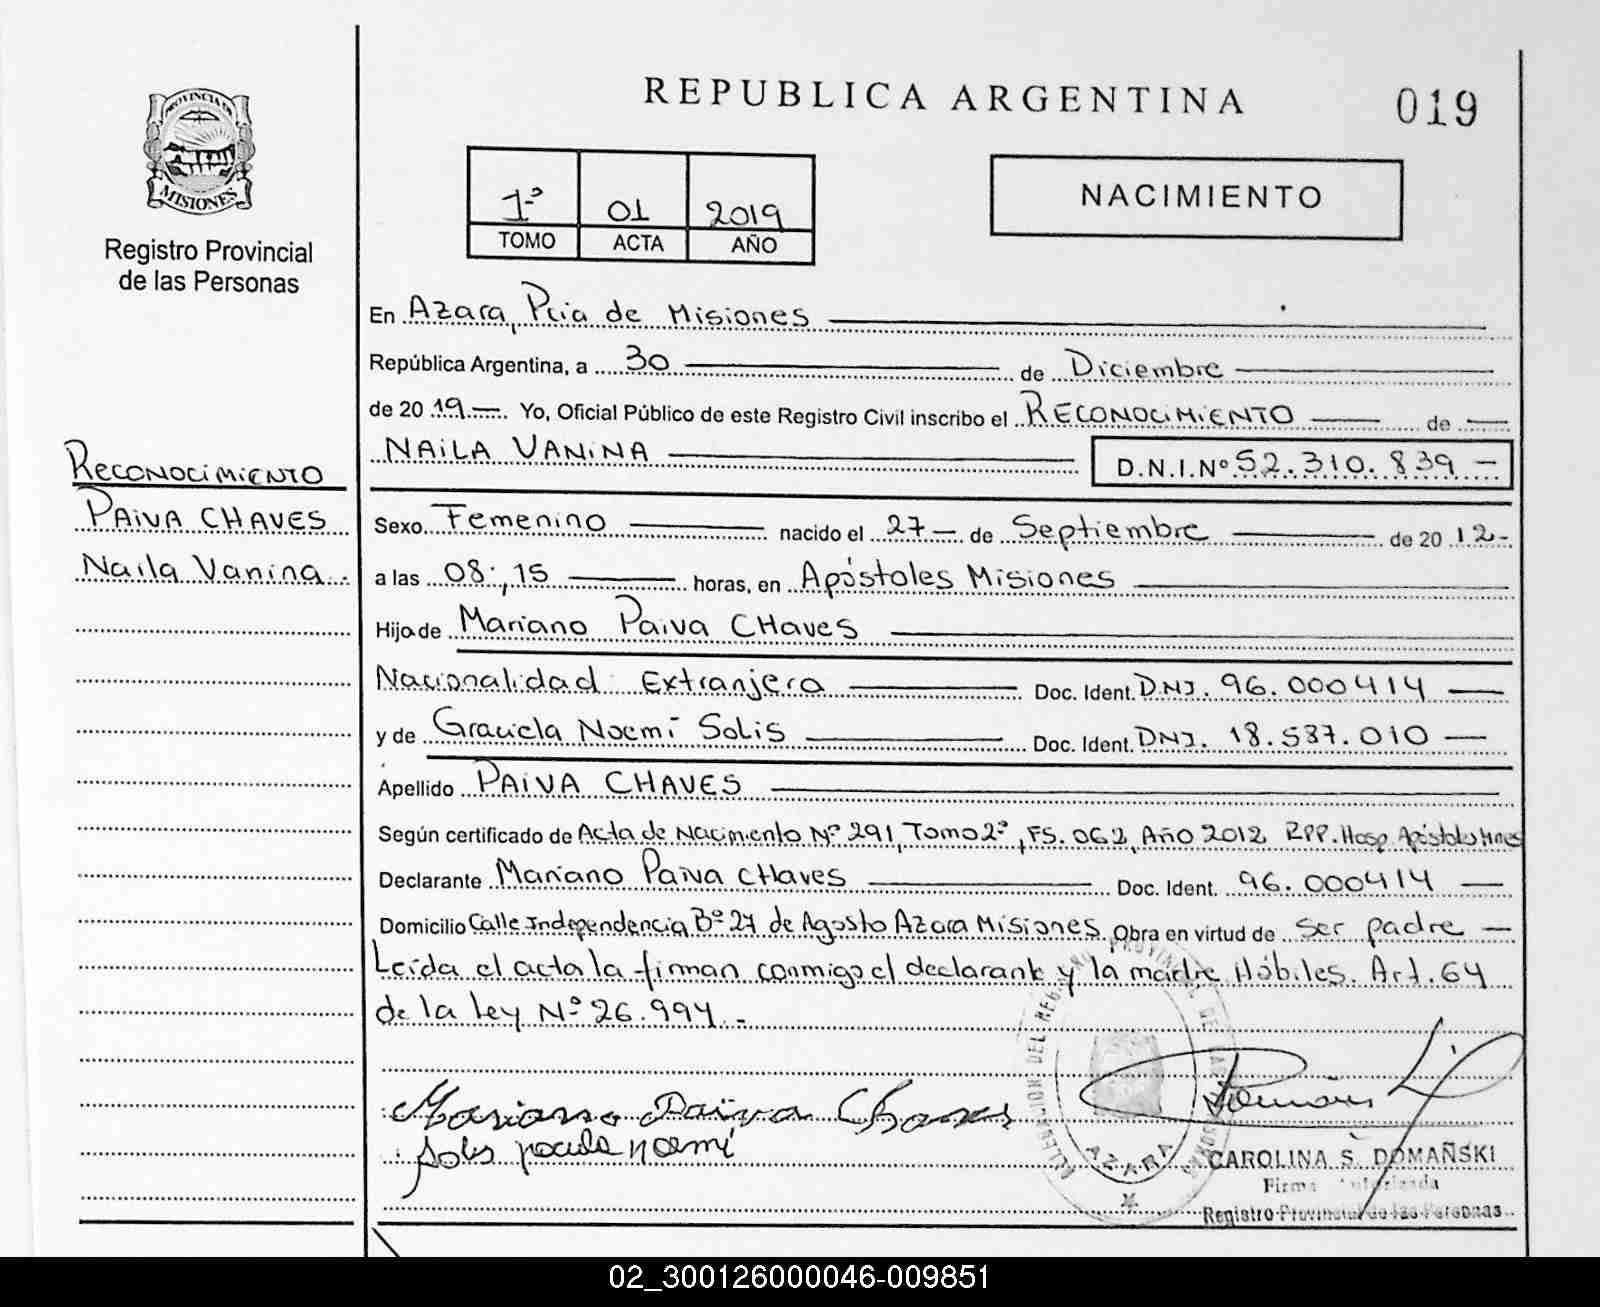 REPUBLICA ARGENTINA
019
PROVINCIA DE
MISIONES
Registro Provincial
de las Personas
1º 01 2019
TOMO ACTA AÑO
NACIMIENTO
En Azara, Pcia de Misiones
República Argentina, a 30 de Diciembre
de 2019 Yo, Oficial Público de este Registro Civil inscribo el RECONOCIMIENTO de
NAILA VANINA D.N.I.Nº 52.310.839
RECONOCIMIENTO
PAIVA CHAVES
Naila Vanina
Sexo Femenino nacido el 27 de Septiembre de 2012
a las 08:,15 horas, en Apóstoles Misiones
Hijo de Mariano Paiva CHaves
Nacionalidad Extranjera Doc. Ident. DNI. 96.000414
y de Graciela Noemí Solis Doc. Ident. DNI. 18.537.010
Apellido PAIVA CHAVES
Según certificado de Acta de Nacimiento Nº 291, Tomo 2º, FS. 062, Año 2012 RPP. Hosp Apóstoles Mnes
Declarante Mariano Paiva CHaves Doc. Ident. 96.000414
Domicilio Calle Independencia Bº 27 de Agosto Azara Misiones Obra en virtud de ser padre
Leída el acta la firman conmigo el declarante y la madre Hábiles. Art. 64
de la ley Nº 26.994.-
Mariano Paiva Chaves
Solis noemí
AZARA
CAROLINA S. DOMAÑSKI
Firma Autorizada
Registro Provincial de las Personas
02_300126000046-009851